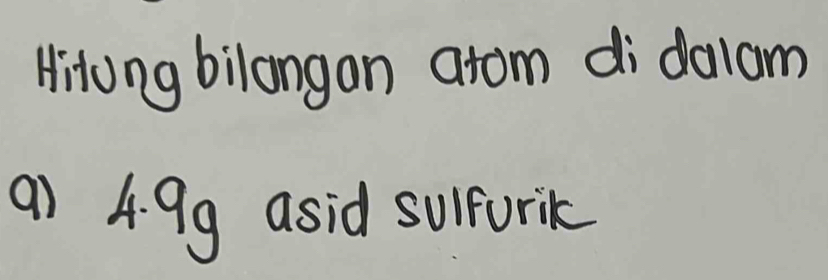 Hitung bilangan atom di dalam
a) 4.9g asid sulfurik